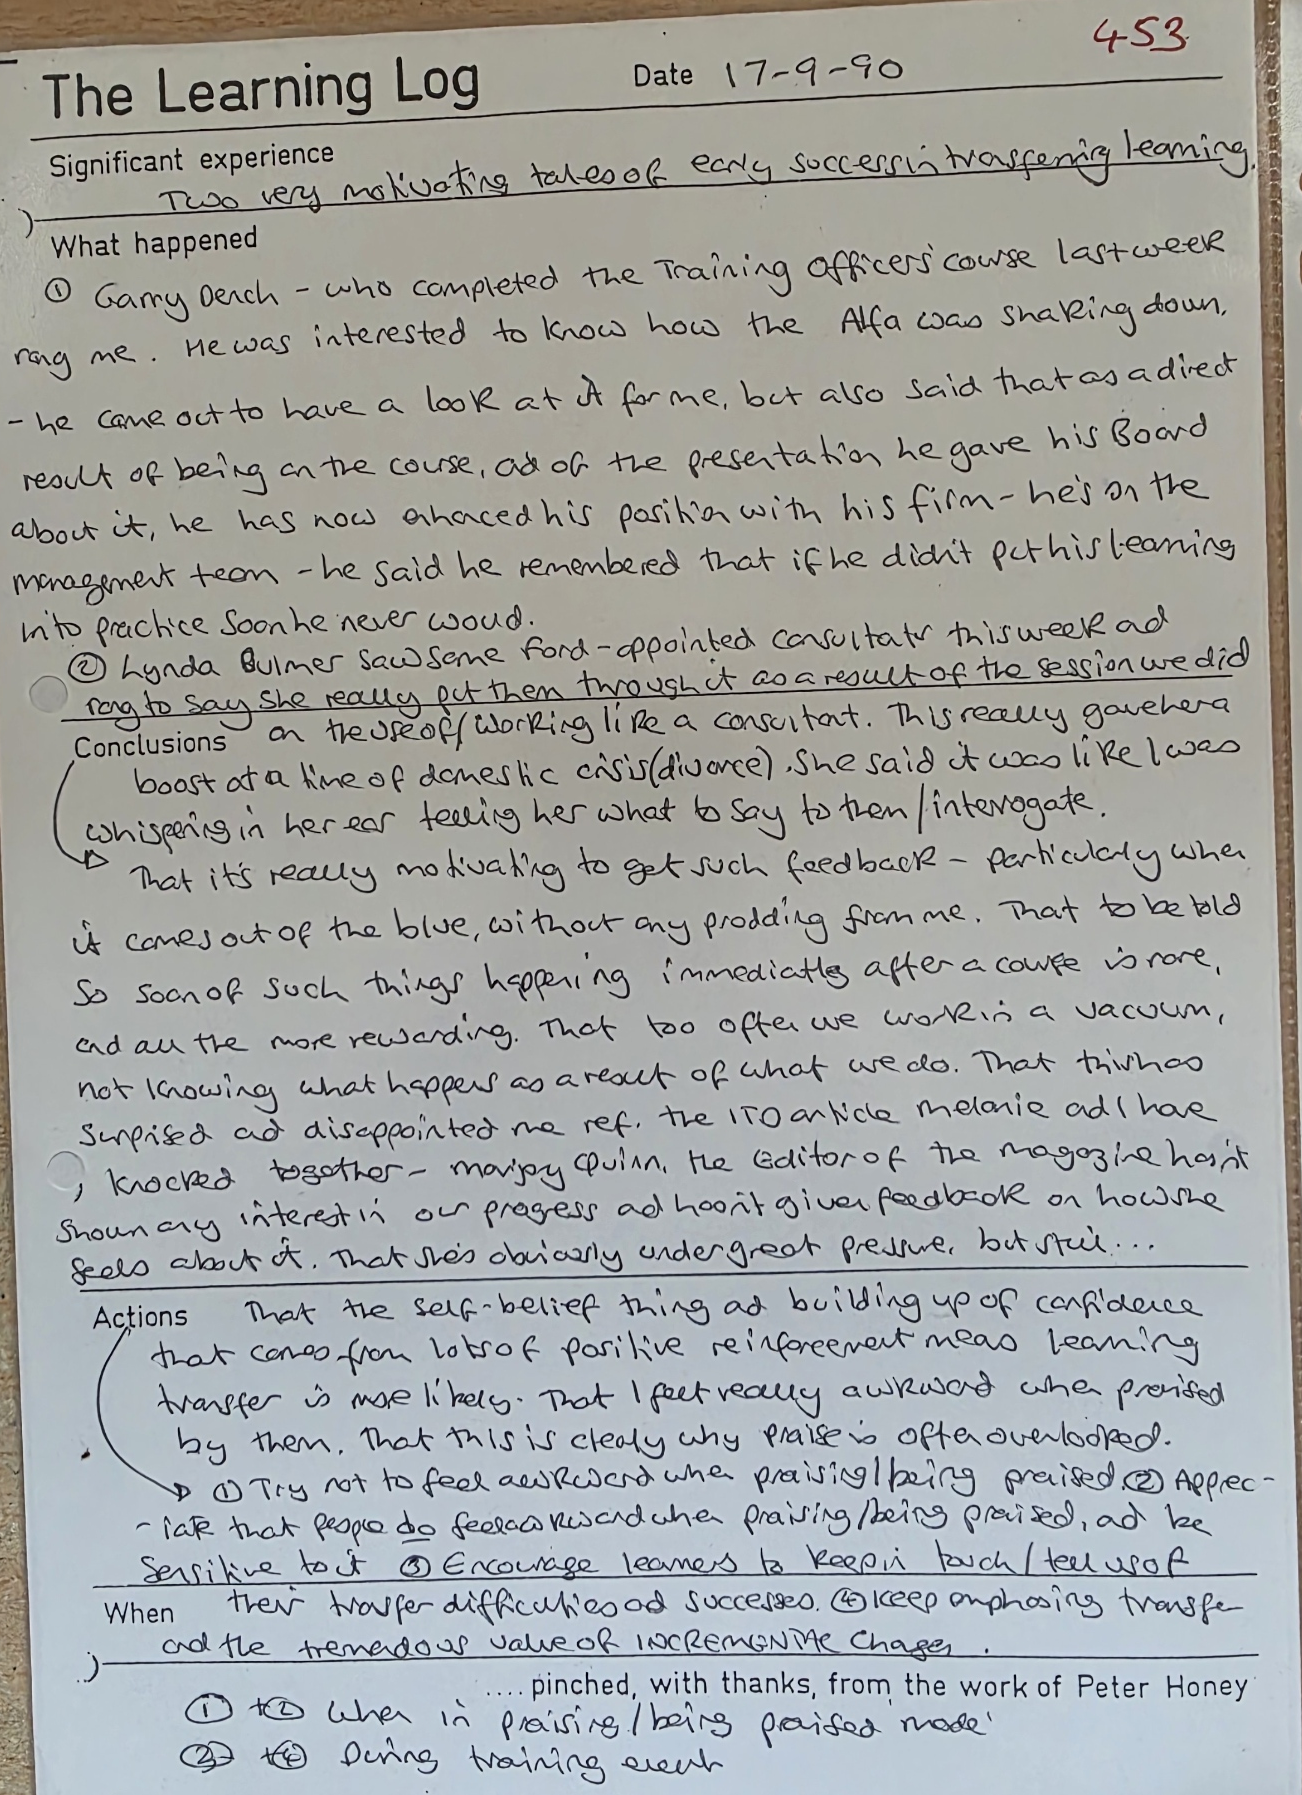 453
The Learning Log Date 17-9-90
Significant experience
Two very motivating tales of early success in transferring learning.
What happened
① Garry Dench - who completed the Training Officers' course last week
rang me. He was interested to know how the Alfa was shaking down,
- he came out to have a look at it for me, but also said that as a direct
result of being on the course, and of the presentation he gave his Board
about it, he has now enhanced his position with his firm - he's on the
management team - he said he remembered that if he didn't put his learning
into practice soon he never would.
② Lynda Bulmer saw some Ford-appointed consultants this week and
rang to say she really put them through it as a result of the session we did
Conclusions on the use of/working like a consultant. This really gave her a
boost at a time of domestic crisis (divorce). She said it was like I was
whispering in her ear telling her what to say to them/interrogate.
That it's really motivating to get such feedback - particularly when
it comes out of the blue, without any prodding from me. That to be told
so soon of such things happening immediately after a course is rare,
and all the more rewarding. That too often we work in a vacuum,
not knowing what happens as a result of what we do. That this has
surprised and disappointed me ref. the ITO article Melanie and I have
knocked together - Marjory Quinn, the Editor of the magazine hasn't
shown any interest in our progress and hasn't given feedback on how she
feels about it. That she's obviously under great pressure, but still...
Actions That the self-belief thing and building up of confidence
that comes from lots of positive reinforcement means learning
transfer is more likely. That I felt really awkward when praised
by them. That this is clearly why praise is often overlooked.
① Try not to feel awkward when praising/being praised. ② Apprec-
-iate that people do feel awkward when praising/being praised, and be
sensitive to it ③ Encourage learners to keep in touch/tell us of
When their transfer difficulties and successes. ④ Keep emphasing transfer
and the tremendous value of INCREMENTAL changes.
.... pinched, with thanks, from the work of Peter Honey
① + ② When in praising/being praised 'mode'
③ + ④ During training events